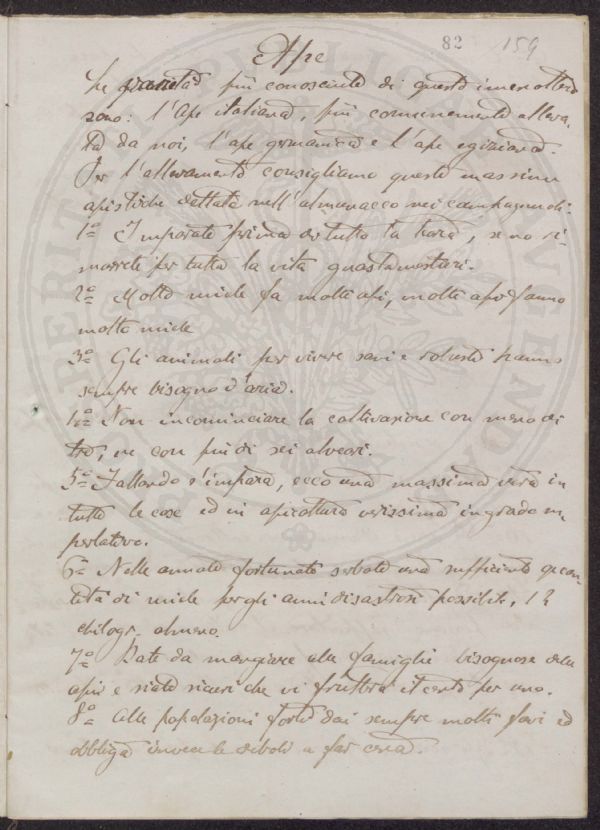 82 159
Ape
Le varietà più conosciute di questo imenottero
sono: l'Ape italiana, più comunemente alleva-
ta da noi, l'ape germanica e l'ape egiziana.
Per l'allevamento consigliamo queste massime
apistiche dettate nell'almanacco nei campagnuoli:
1º Imparate prima di tutto la teoria, se no ri-
marrete per tutta la vita guastamestieri.
2º Molto miele fa molte api, molte api fanno
molto miele
3º Gli animali per vivere sani e robusti hanno
sempre bisogno d'aria.
4º Non incominciare la coltivazione con meno di
tre, ne con più di sei alveari.
5º Fallando s'impara, ecco una massima vera in
tutte le cose ed in apicoltura verissima in grado su-
perlativo.
6º Nelle annate fortunate serbate una sufficiente quan-
tità di miele per gli anni disastrosi possibili, 12
chilogr. almeno.
7º Date da mangiare alle famiglie bisognose delle
api e siate sicuri che vi frutterà il cento per uno.
8º Alle popolazioni forti dai sempre molti favi ed
obbliga invece le deboli a far cera.